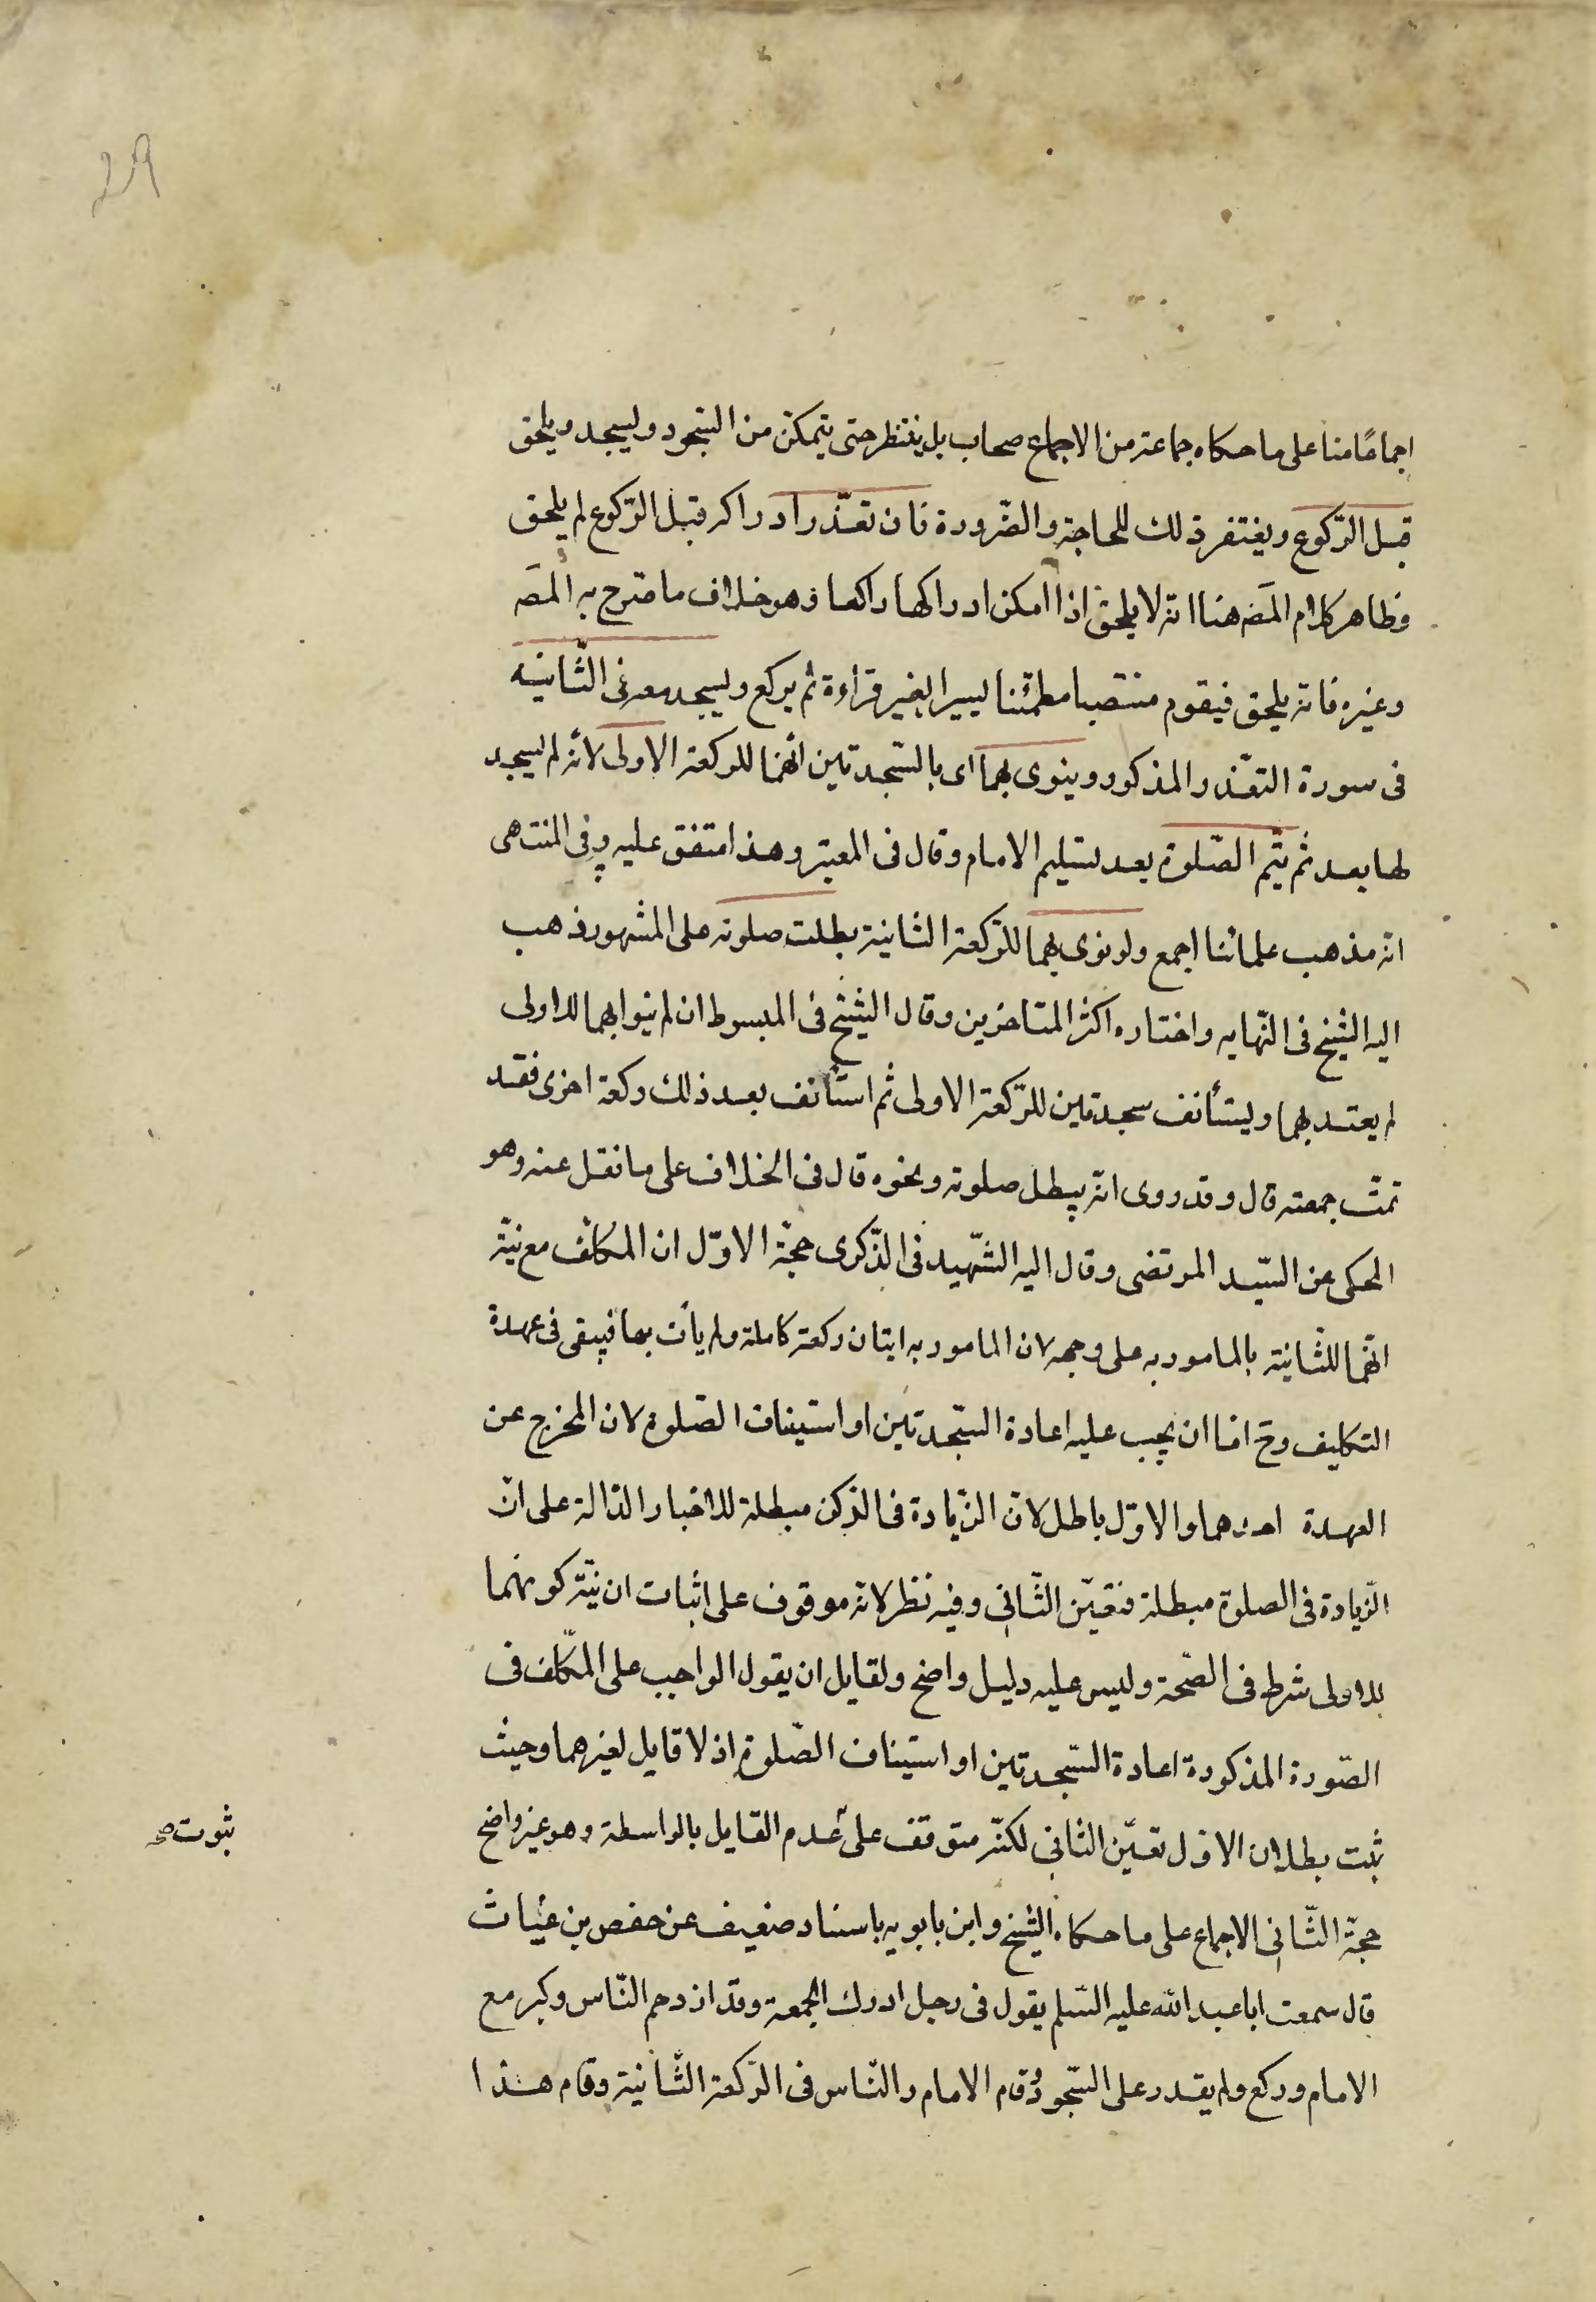 اجماعًا منا على ما حكاه جماعة من الاجماع صحاب بل ينتظر حتى يتمكن من السّجود وليسجد ويلحق
قبل الرّكوع ويغتفر ذلك للحاجة والضّرورة فان تعذّر ادراكه قبل الرّكوع لم يلحق
وظاهر كلام المصَ هنا انه لا يلحق اذا امكن ادراكها راكعا وهو خلاف ما صرح به المصَ
وغيره فانه يلحق فيقوم منتصبا مطمئنا يسيرا بغير قراءة ثم يركع ويسجد معه فى الثّانية
فى سورة التعّذر المذكور وينوى بهما اى بالسّجدتين انهّما للركعة الاولى لأنه لم يسجد
لها بعد ثم يتّم الصّلوة بعد تسليم الامام وقال فى المعتبر وهذا متفق عليه وفى المنتهى
انه مذهب علمائنا اجمع ولو نوى بهما للرّكعة الثانية بطلت صلوته على المشهور ذهب
اليه الشّيخ فى النّهايه واختاره اكثر المتاخرين وقال الشّيخ فى المبسوط ان لم ينوا بهما للاولى
لم يعتد بهما ويستأنف سجدتين للرّكعة الاولى ثم استأنف بعد ذلك ركعة اخرى فقد
تمتّ جمعته قال وقد روى انه يبطل صلوته ونحوه قال فى الخلاف على ما نقل عنه وهو
المحكى عن السّيد المرتضى وقال اليه الشّهيد فى الذّكرى حجّة الاوّل ان المكلف مع نيّة
انّهما للثّانية بالمامور به على وجهه لان المامور به ايتان ركعة كاملة ولم يأت بها فيبقى فى عهدة
التكليف وح اما ان يجب عليه اعادة السّجدتين او استيناف الصّلوة لان المخرج عن
العهدة احدهما والاوّل باطل لانّ الزّيادة فى الرّكن مبطلة للاخبار الدّالة على انّ
الزّيادة فى الصلوة مبطلة فتعيّن الثّانى وفيه نظر لانه موقوف على اثبات ان نيّة كونهما
للاولى شرط فى الصّحة وليس عليه دليل واضح ولقايل ان يقول الواجب على المكّلف فى
الصّورة المذكورة اعادة السّجدتين او استيناف الصّلوة اذ لا قايل لغيرهما وحيث
ثبت بطلان الاوّل تعيّن الثانى لكنّه متوقف على عدم القايل بالواسطة وهو غير واضح
ثبوت صح
حجّة الثّانى الاجماع على ما حكاه الشّيخ وابن بابويه باسناد ضعيف عن حفص بن غياث
قال سمعت ابا عبد الله عليه السّلم يقول فى رجل ادرك الجمعة وقد ازدحم النّاس وكبر مع
الامام وركع ولم يقدر على السّجود وقام الامام والنّاس فى الرّكعة الثّانية وقام هذا